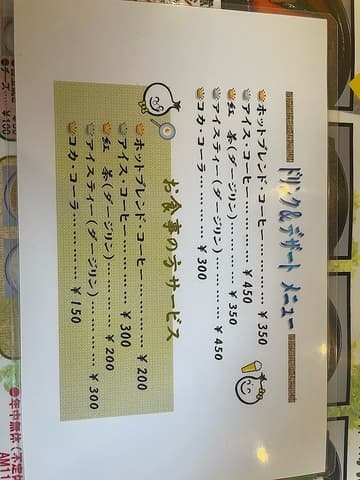 ドリンク&デザート メニュー
ホットブレンド・コーヒー………¥350
アイス・コーヒー………¥450
紅 茶(ダージリン)………¥350
アイスティー(ダージリン)………¥450
コカ・コーラ………¥300
お食事の方サービス
ホットブレンド・コーヒー………¥200
アイス・コーヒー………¥300
紅 茶(ダージリン)………¥200
アイスティー(ダージリン)………¥300
コカ・コーラ………¥150
チーズ……¥100
年中無休(不定休
AM11